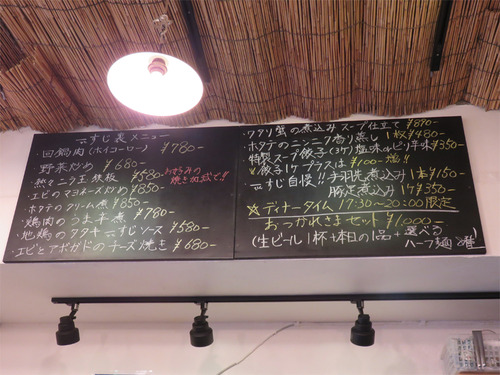 一すじ裏メニュー
・回鍋肉(ホイコーロー) ¥780-
野菜炒め ¥680-
・熱々ニラ玉鉄板 ¥580-
・エビのマヨネーズ炒め ¥850-
・ホタテのクリーム煮 ¥850-
・鶏肉のうま辛煮 ¥780-
・地鶏のタタキ一すじソース ¥580-
・エビとアボガドのチーズ焼き ¥680-
焼き加減で!!
・ワタリ蟹の煮込みスープ仕立て ¥870-
・ホタテのニンニク香り蒸し 1枚 ¥480-
・特製スープ餃子(3ヶ)塩味orピリ辛味 ¥350-
餃子1ヶプラスは ¥100-増!!
・一すじ自慢!!手羽先煮込み 1本 ¥150-
豚足煮込み 1ヶ ¥350-
☆ディナータイム 17:30~20:00限定
おつかれさまセット ¥1,000-
(生ビール1杯+本日の1品+選べる
ハーフ麺